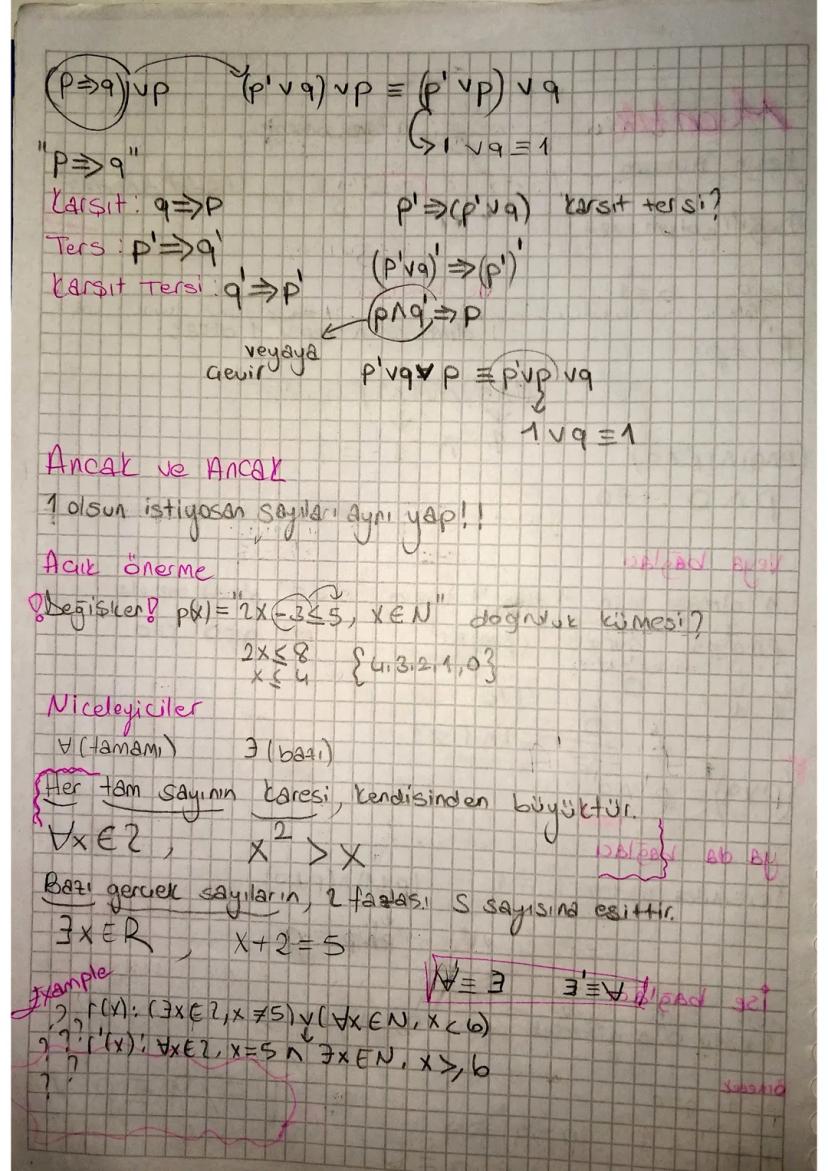 (p⇒q)∨p (p'∨q)∨p ≡ (p'∨p)∨q
1 ∨q≡1
"p⇒q"
Karşıt: q⇒p
p'⇒(p'∨q) karşıt tersi?
Ters: p'⇒q'
(p'∨q)'⇒(p')'
Karşıt Tersi: q'⇒p'
p∧q'⇒p
veyaya
çevir
p'∨q∨p ≡ p'∨p ∨q
1∨q≡1
Ancak ve Ancak
1 olsun istiyosan sayıları aynı yap!!
Açık önerme
!Değişken! p(x)="2x-3≤5, x∈N" doğruluk kümesi?
2x≤8 {4,3,2,1,0}
x≤4
Niceleyiciler
∀(tamamı) ∃(bazı)
Her tam sayının karesi, kendisinden büyüktür.
∀x∈Z, x²>x
Bazı gerçek sayıların, 2 fazlası 5 sayısına eşittir.
∃x∈R, x+2=5
∀'≡∃ ∃'≡∀
Example
? r(x): (∃x∈Z, x≠5)∨(∀x∈N, x<6)
? ? ? r'(x): ∀x∈Z, x=5 ∧ ∃x∈N, x≥6
? ?
?